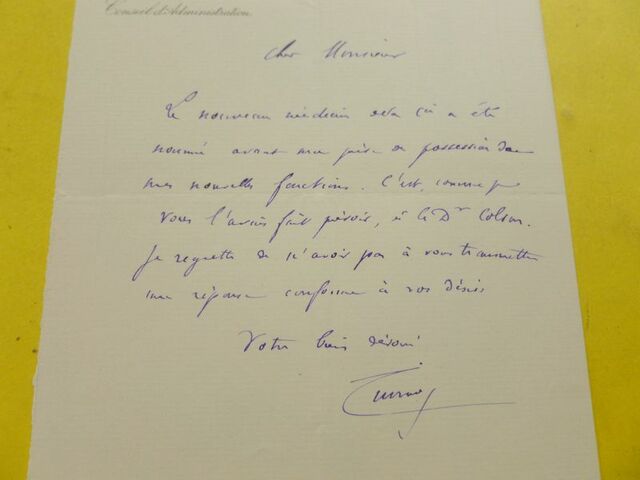 Conseil d'Administration
Cher Monsieur
Le nouveau médecin de la Cie a été
nommé avant ma prise de possession de
mes nouvelles fonctions. C'est, comme je
vous l'avais fait prévoir, à le Dr Colson.
Je regrette de n'avoir pas à vous transmettre
une réponse conforme à vos désirs
Votre bien dévoué